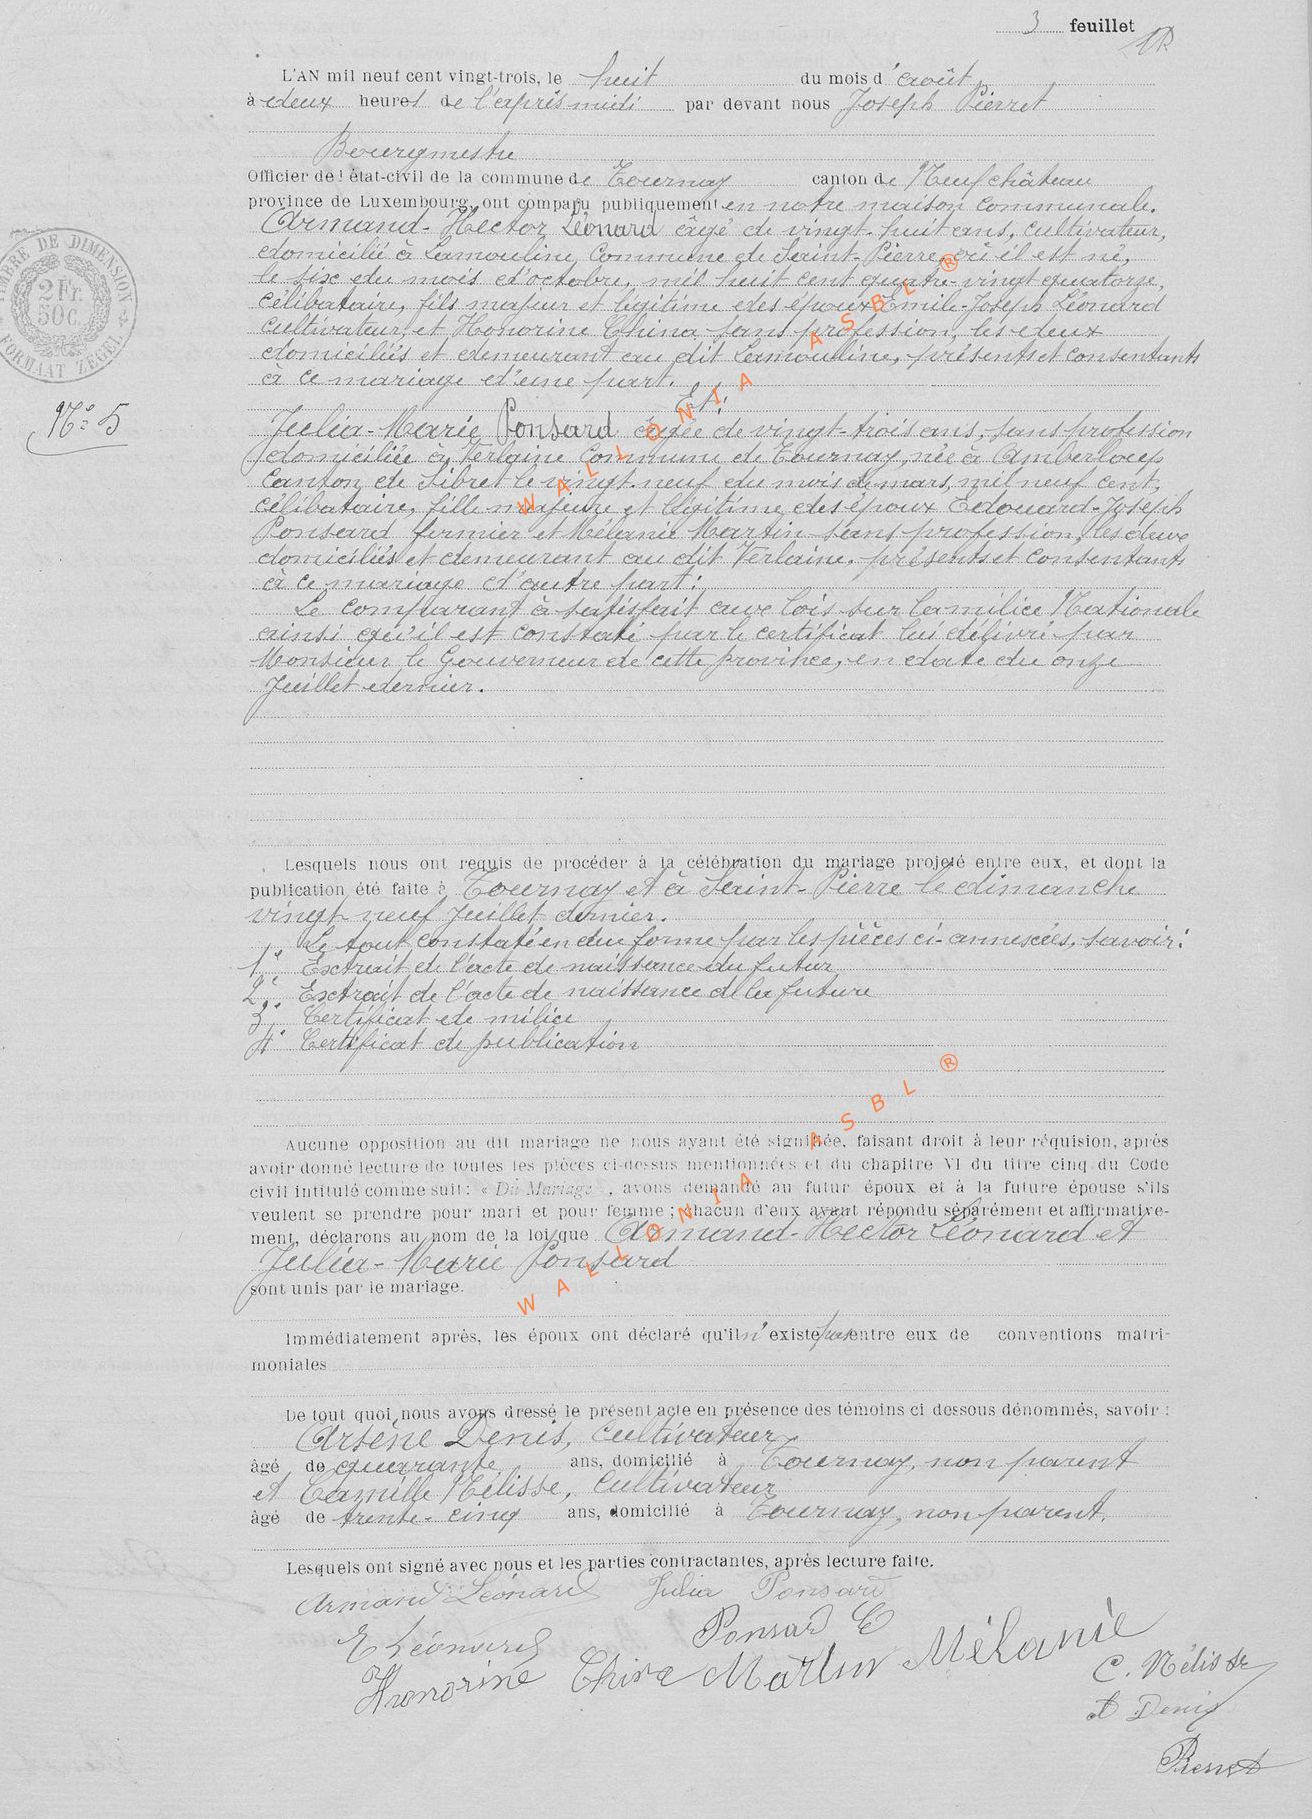 3 feuillet
TIMBRE DE DIMENSION
2 Fr.
50 c.
FORMAAT ZEGEL
L'AN mil neuf cent vingt-trois, le huit du mois d'août
à deux heures de l'après midi par devant nous Joseph Pierret
Bourgmestre
Officier de l'état-civil de la commune de Tournay canton de Neufchâteau
province de Luxembourg, ont comparu publiquement en notre maison communale.
Armand-Hector Léonard âgé de vingt-huit ans, cultivateur,
domicilié à Lamouline, Commune de Saint-Pierre où il est né,
le six du mois d'octobre, mil huit cent quatre-vingt quatorze,
célibataire, fils majeur et légitime des époux Emile-Joseph Léonard
cultivateur, et Honorine China sans profession, les deux
domiciliés et demeurant au dit Lamouline, présents et consentants
à ce mariage d'une part.
Et:
N° 5
Julia-Marie Ponsard âgée de vingt-trois ans, sans profession
domiciliée à Verlaine Commune de Tournay, née à Amberloup
Canton de Sibret le vingt-neuf du mois de mars, mil neuf cent,
célibataire, fille majeure et légitime des époux Edouard-Joseph
Ponsard fermier et Mélanie Martin sans profession, les deux
domiciliés et demeurant au dit Verlaine, présents et consentants
à ce mariage d'autre part:
Le comparant à satisfait aux lois sur la milice Nationale
ainsi qu'il est constaté par le certificat lui délivré par
Monsieur le Gouverneur de cette province, en date du onze
Juillet dernier.
Lesquels nous ont requis de procéder à la célébration du mariage projeté entre eux, et dont la
publication été faite à Tournay et à Saint-Pierre le dimanche
vingt neuf Juillet dernier.
Le tout constaté en due forme par les pièces ci-annexées, savoir:
1° Extrait de l'acte de naissance du futur
2° Extrait de l'acte de naissance de la future
3° Certificat de milice
4° Certificat de publication
Aucune opposition au dit mariage ne nous ayant été signifiée, faisant droit à leur réquision, après
avoir donné lecture de toutes les pièces ci-dessus mentionnées et du chapitre VI du titre cinq du Code
civil intitulé comme suit: « Du Mariage », avons demandé au futur époux et à la future épouse s'ils
veulent se prendre pour mari et pour femme; chacun d'eux ayant répondu séparément et affirmative-
ment, déclarons au nom de la loi que Armand-Hector Léonard et
Julia-Marie Ponsard
sont unis par le mariage.
Immédiatement après, les époux ont déclaré qu'il n'existe pas entre eux de conventions matri-
moniales
De tout quoi nous avons dressé le présent acte en présence des témoins ci dessous dénommés, savoir:
Arsène Denis, Cultivateur
âgé de quarante ans, domicilié à Tournay, non parent
et Camille Nélisse, Cultivateur
âgé de trente-cinq ans, domicilié à Tournay, non parent.
Lesquels ont signé avec nous et les parties contractantes, après lecture faite.
Armand Léonard Julia Ponsard
E Léonard Ponsard E
Honorine China Martin Mélanie
C. Nélisse
A Denis
Pierret
WALLONIA ASBL ®
WALLONIA ASBL ®